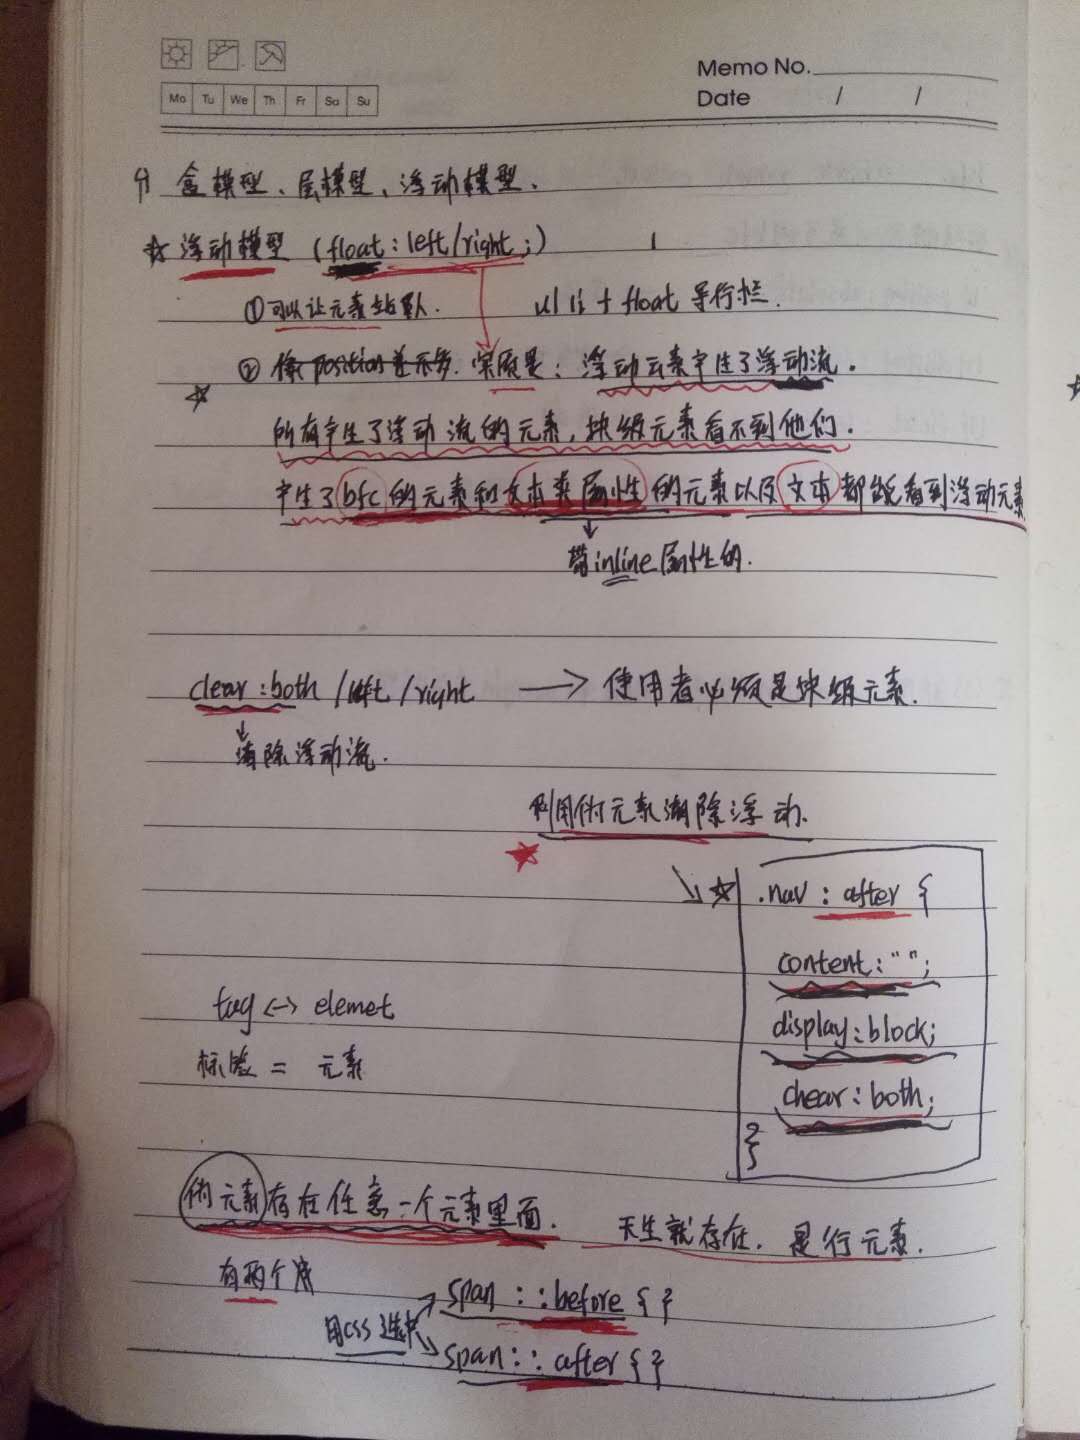 Memo No.
Date / /
Mo Tu We Th Fr Sa Su
盒模型、层模型、浮动模型、
☆ 浮动模型 (float:left/right;)
①可以让元素站队. ul li + float 导行栏.
② position 差不多. 实质是:浮动元素产生了浮动流.
☆
所有产生了浮动流的元素,块级元素看不到他们.
产生了bfc的元素和文本类属性的元素以及文本都能看到浮动元素
带inline属性的.
clear:both /left /right → 使用者必须是块级元素.
清除浮动流.
利用伪元素清除浮动.
☆ .nav:after {
content:"";
display:block;
tag <-> elemet
标签 = 元素
chear:both;
}
伪元素存在任意一个元素里面. 天生就存在. 是行元素.
有两个
span ::before { }
用css选中
span::after { }